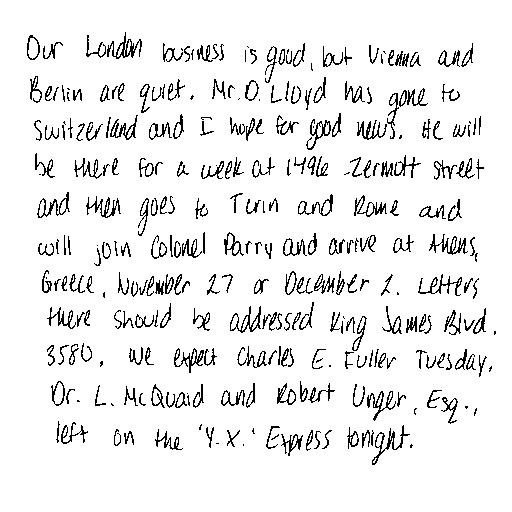 Our London business is good, but Vienna and
Berlin are quiet. Mr. D. Lloyd has gone to
Switzerland and I hope for good news. He will
be there for a week at 1496 Zermott Street
and then goes to Turin and Rome and
will join Colonel Parry and arrive at Athens,
Greece, November 27 or December 2. Letters
there should be addressed King James Blvd.
3580. We expect Charles E. Fuller Tuesday.
Dr. L. McQuaid and Robert Unger, Esq.,
left on the 'Y.X.' Express tonight.